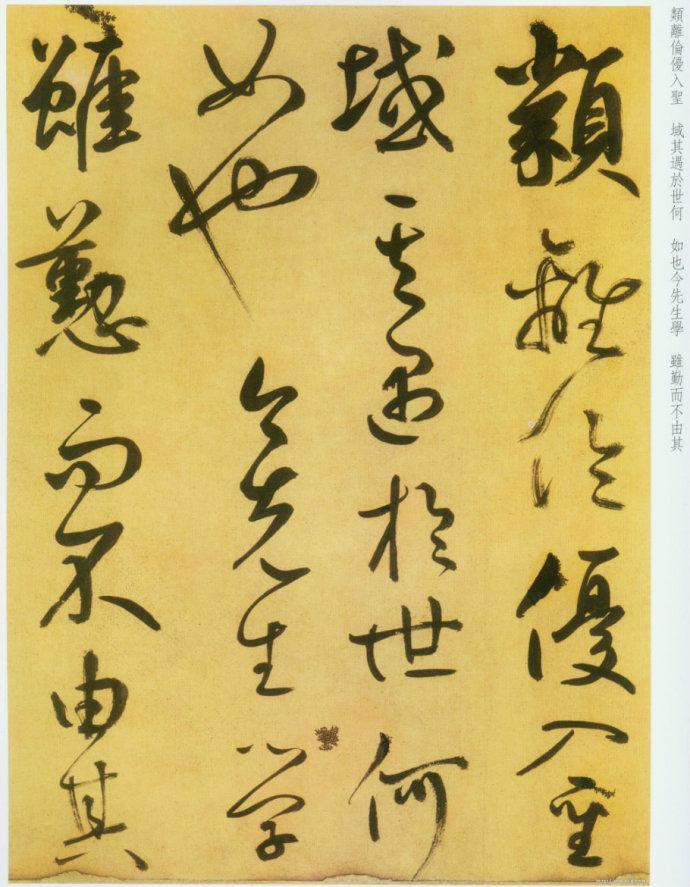 類離倫優入聖
域其遇於世何
如也今先生学
雖懃而不由其
類離倫優入聖 域其遇於世何 如也今先生學 雖勤而不由其